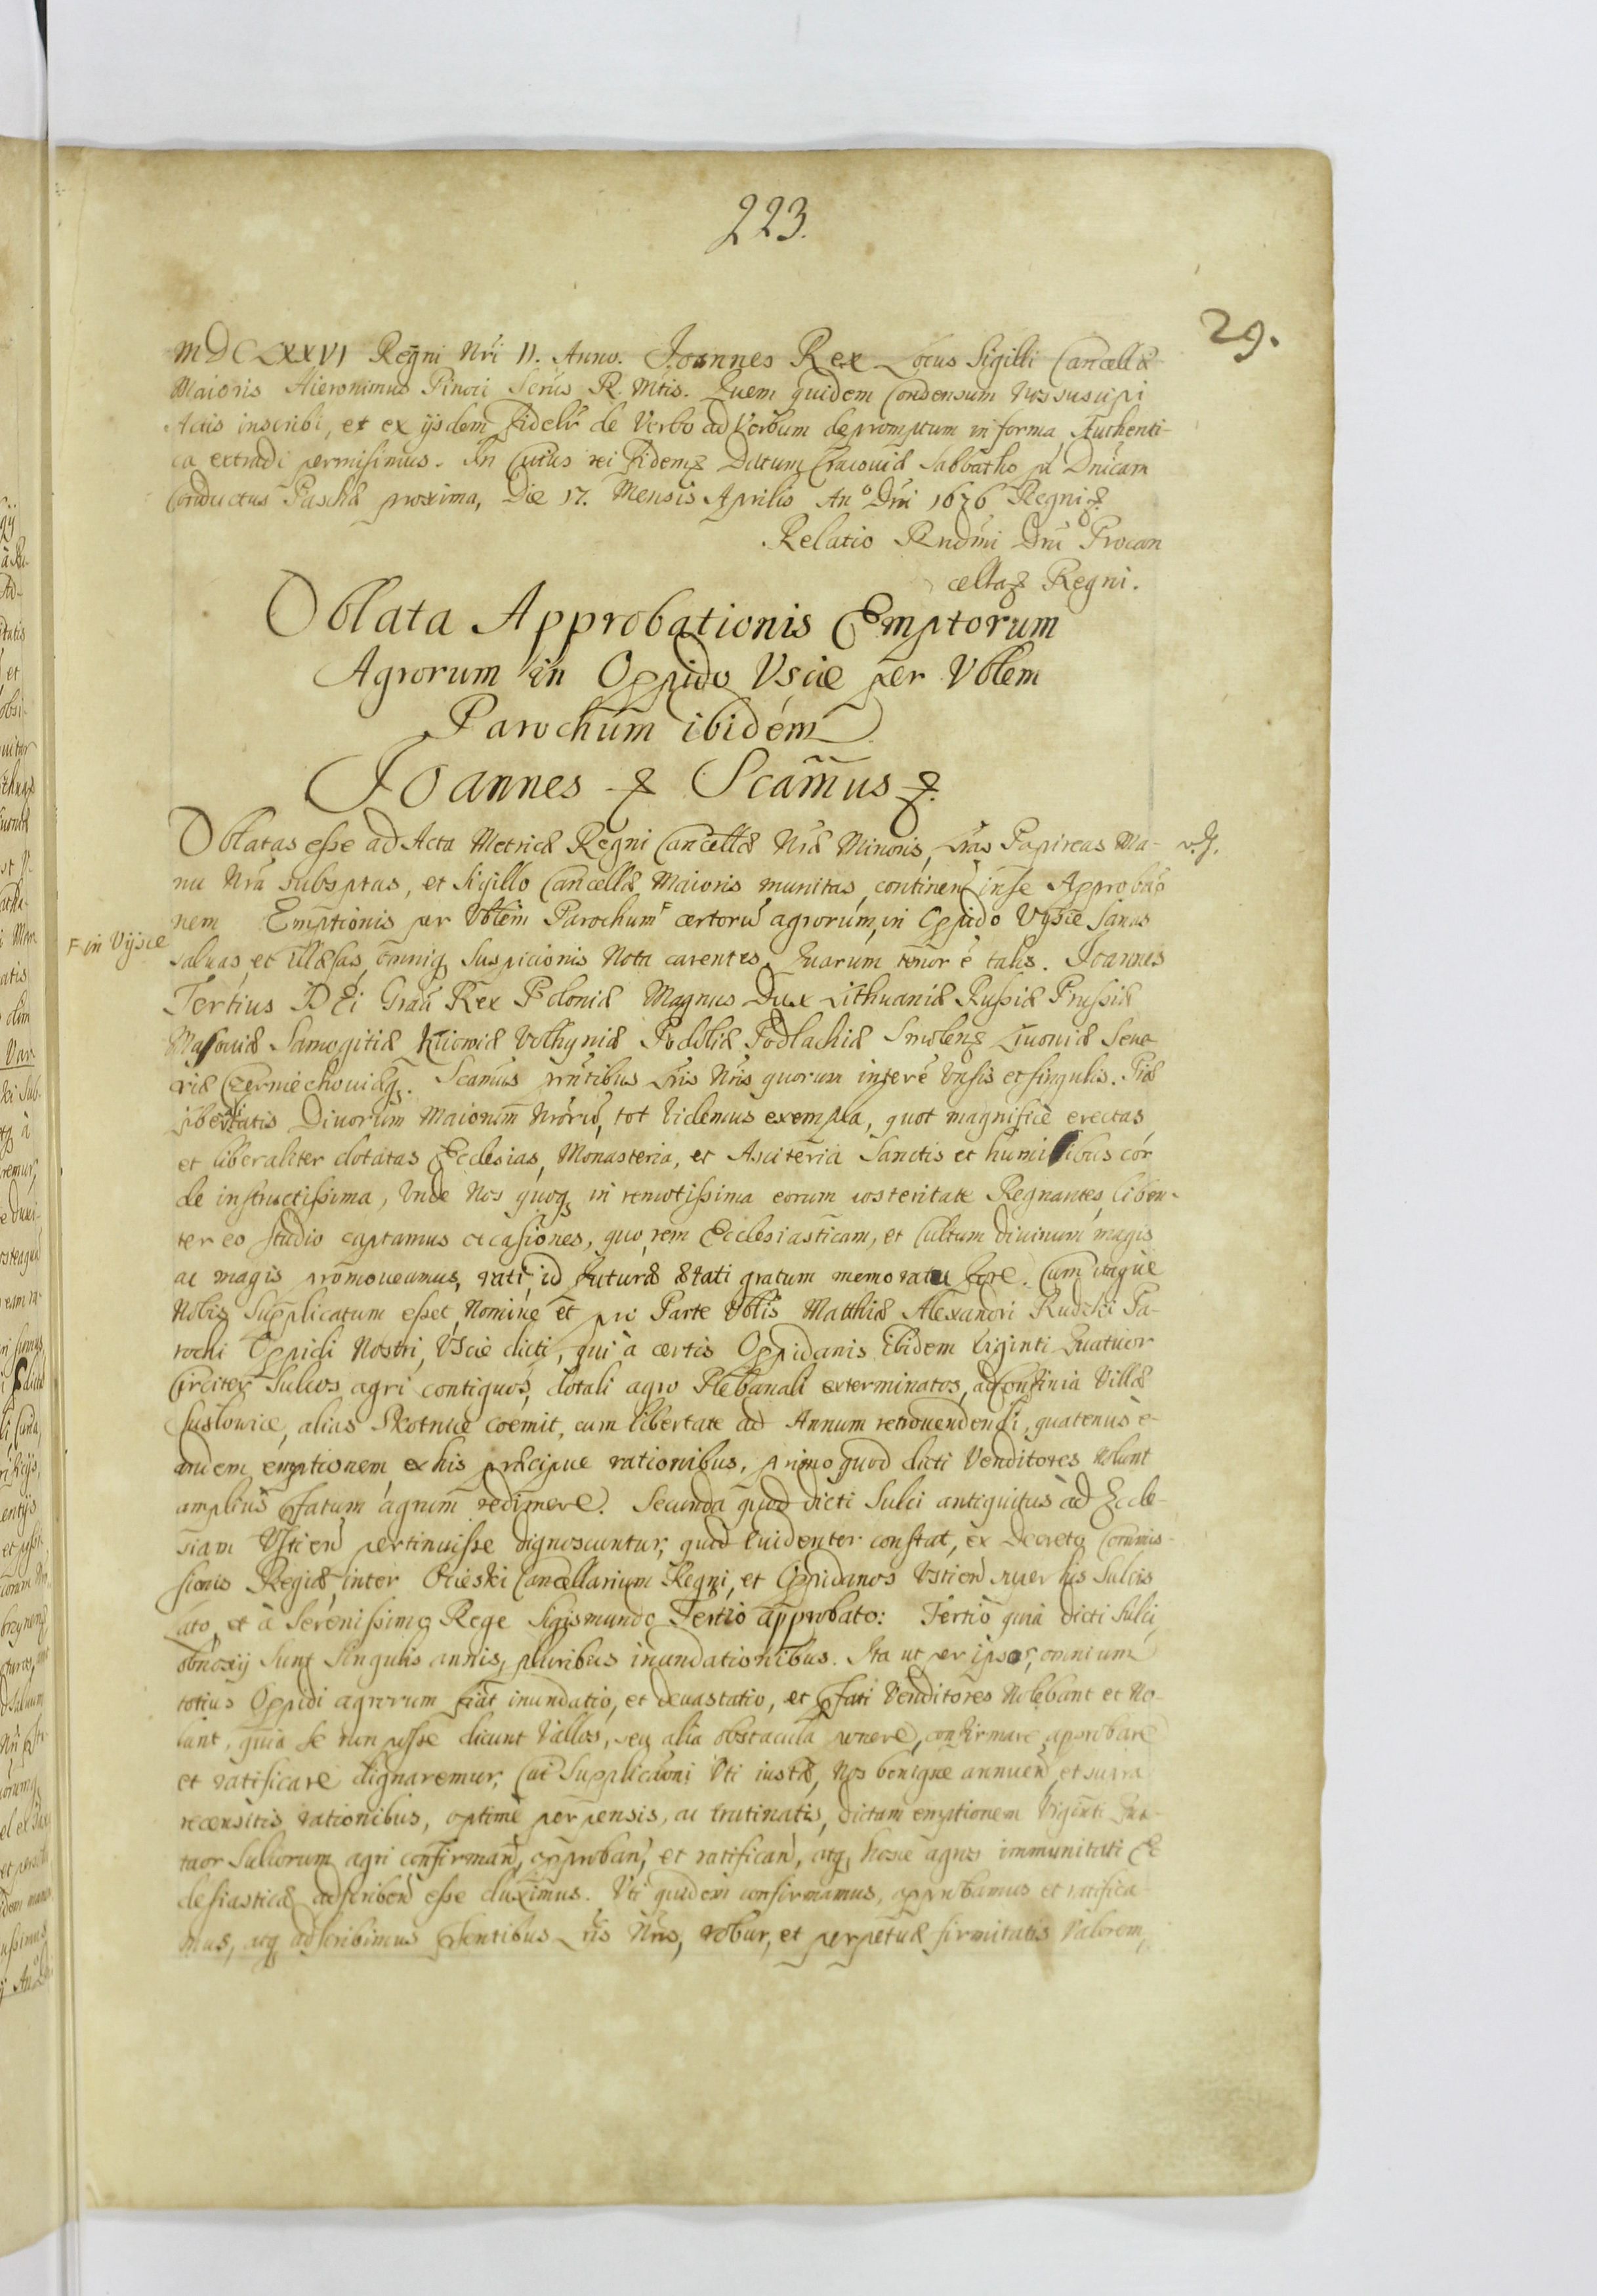 223.
29.
MDCLXXVI Regni Nri II. Anno. Joannes Rex Locus Sigilli Cancellæ
Maioris Hieronimus Pinoci Scriis R. Mtis. Quem quidem Condensum Nos suscipi
Actis inscribi, et ex ijsdem fidelr de Verbo ad Verbum depromptum in forma Authenti-
ca extradi permisimus. In Cuius rei fidem Datum Cracoviæ Sabbatho pt Dnicam
Conductus Paschæ proxima, Die 17. Mensis Aprilis Ano Dni 1676 Regni
Relatio Rndmi Dni Procan
cellar Regni.
Oblata Approbationis Emptorum
Agrorum in Oppido Uscie per Vblem
Parochum ibidem
Joannes Scamus
Oblatas esse ad Acta Metricæ Regni Cancellæ Nræ Minoris, Lras Papireas Ma-
nu Nra subsptas, et Sigillo Cancellæ Maioris munitas, continen inse Approbao
nem Emptionis per Vblem Parochum certoru agrorum, in Oppido Vyscie Sanas
F in Vyscie
salvas et illæsas, omniq suspicionis Nota carentes, Quarum tenor e talis. Joannes
Tertius DEi Graa Rex Poloniæ Magnus Dux Lithuaniæ Russiæ Prussiæ
Masoviæ Samogitiæ Kiioviæ Volhyniæ Podoliæ Podlachiæ Smolen Livoniæ Seve
riæ Czerniechoviæq. Scamus pntibus Lris Nris quorum intere Vnsis et singulis. Piæ
libertatis Divorum Maiorum Nroru, tot videmus exempla, quot magnifice erectas
et liberaliter dotatas Ecclesias, Monasteria, et Asciteria Sanctis et humilibus cor
de instructissima, Vnde Nos quoq in remotissima eorum posteritate Regnantes, liben-
ter eo studio captamus occasiones, quo rem Ecclesiasticam, et Cultum divinum magis
ac magis promoveamus, rati id futuræ ætati gratum memoratu fore. Cum itaque
Nobis Supplicatum esset, Nomine et pro Parte Vblis Matthiæ Alexandri Rudzki Pa-
rochi Oppidi Nostri, Vscie dicti, qui a certis Oppidanis Ibidem Viginti Quatuor
Circiter Sulcos agri contiguos, dotali agro Plebanali exterminatos, ad Confinia Villæ
Susłowice, alias Skotnice coemit, cum libertate ad Annum retrovendendi, quatenus e-
andem emptionem ex his præcipue rationibus, primo quod dicti Venditores nolunt
amplius pfatum agrum redimere. Secunda quod dicti Sulci antiquitus ad Eccle-
siam Vstien pertinuisse dignoscuntur, quod evidenter constat, ex Decreto Commis-
sionis Regiæ inter Ocieski Cancellarium Regni, et Oppidanos Vstien super his Sulcis
lato, et a Serenissimo Rege Sigismundo Tertio approbato: Tertio quia dicti Sulci
obnoxij sunt singulis annis, pluribus inundationibus. Ita ut per ipsos, omnium
totius Oppidi agrorum fiat inundatio, et devastatio, et pfati Venditores Nolebant et No-
lunt, quia se non posse dicunt Vallos, seu alia obstacula ponere, confirmare approbare
et ratificare dignaremur, Cui Supplicaoni Uti iustæ, Nos benigne annuen, et supra
recensitis rationibus, optime perpensis, ac trutinatis, dictam emptionem Viginti Qua-
tuor Sulcorum agri confirman, approban, et ratifican, atq hosce agros immunitati Ec
clesiasticæ adscriben esse duximus. Uti quidem confirmamus, approbamus et ratifica-
mus, atq adscribimus pntibus Lris Nris, robur, et perpetuæ firmitatis Valorem,